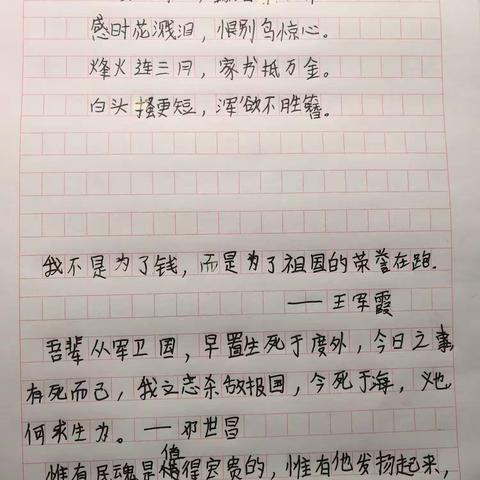 感时花溅泪，恨别鸟惊心。
烽火连三月，家书抵万金。
白头搔更短，浑欲不胜簪。
我不是为了钱，而是为了祖国的荣誉在跑.
——王军霞
吾辈从军卫国，早置生死于度外，今日之事，
有死而已，我立志杀敌报国，今死于海，义也，
何求生为。——邓世昌
惟有民魂是值得宝贵的，惟有他发扬起来，